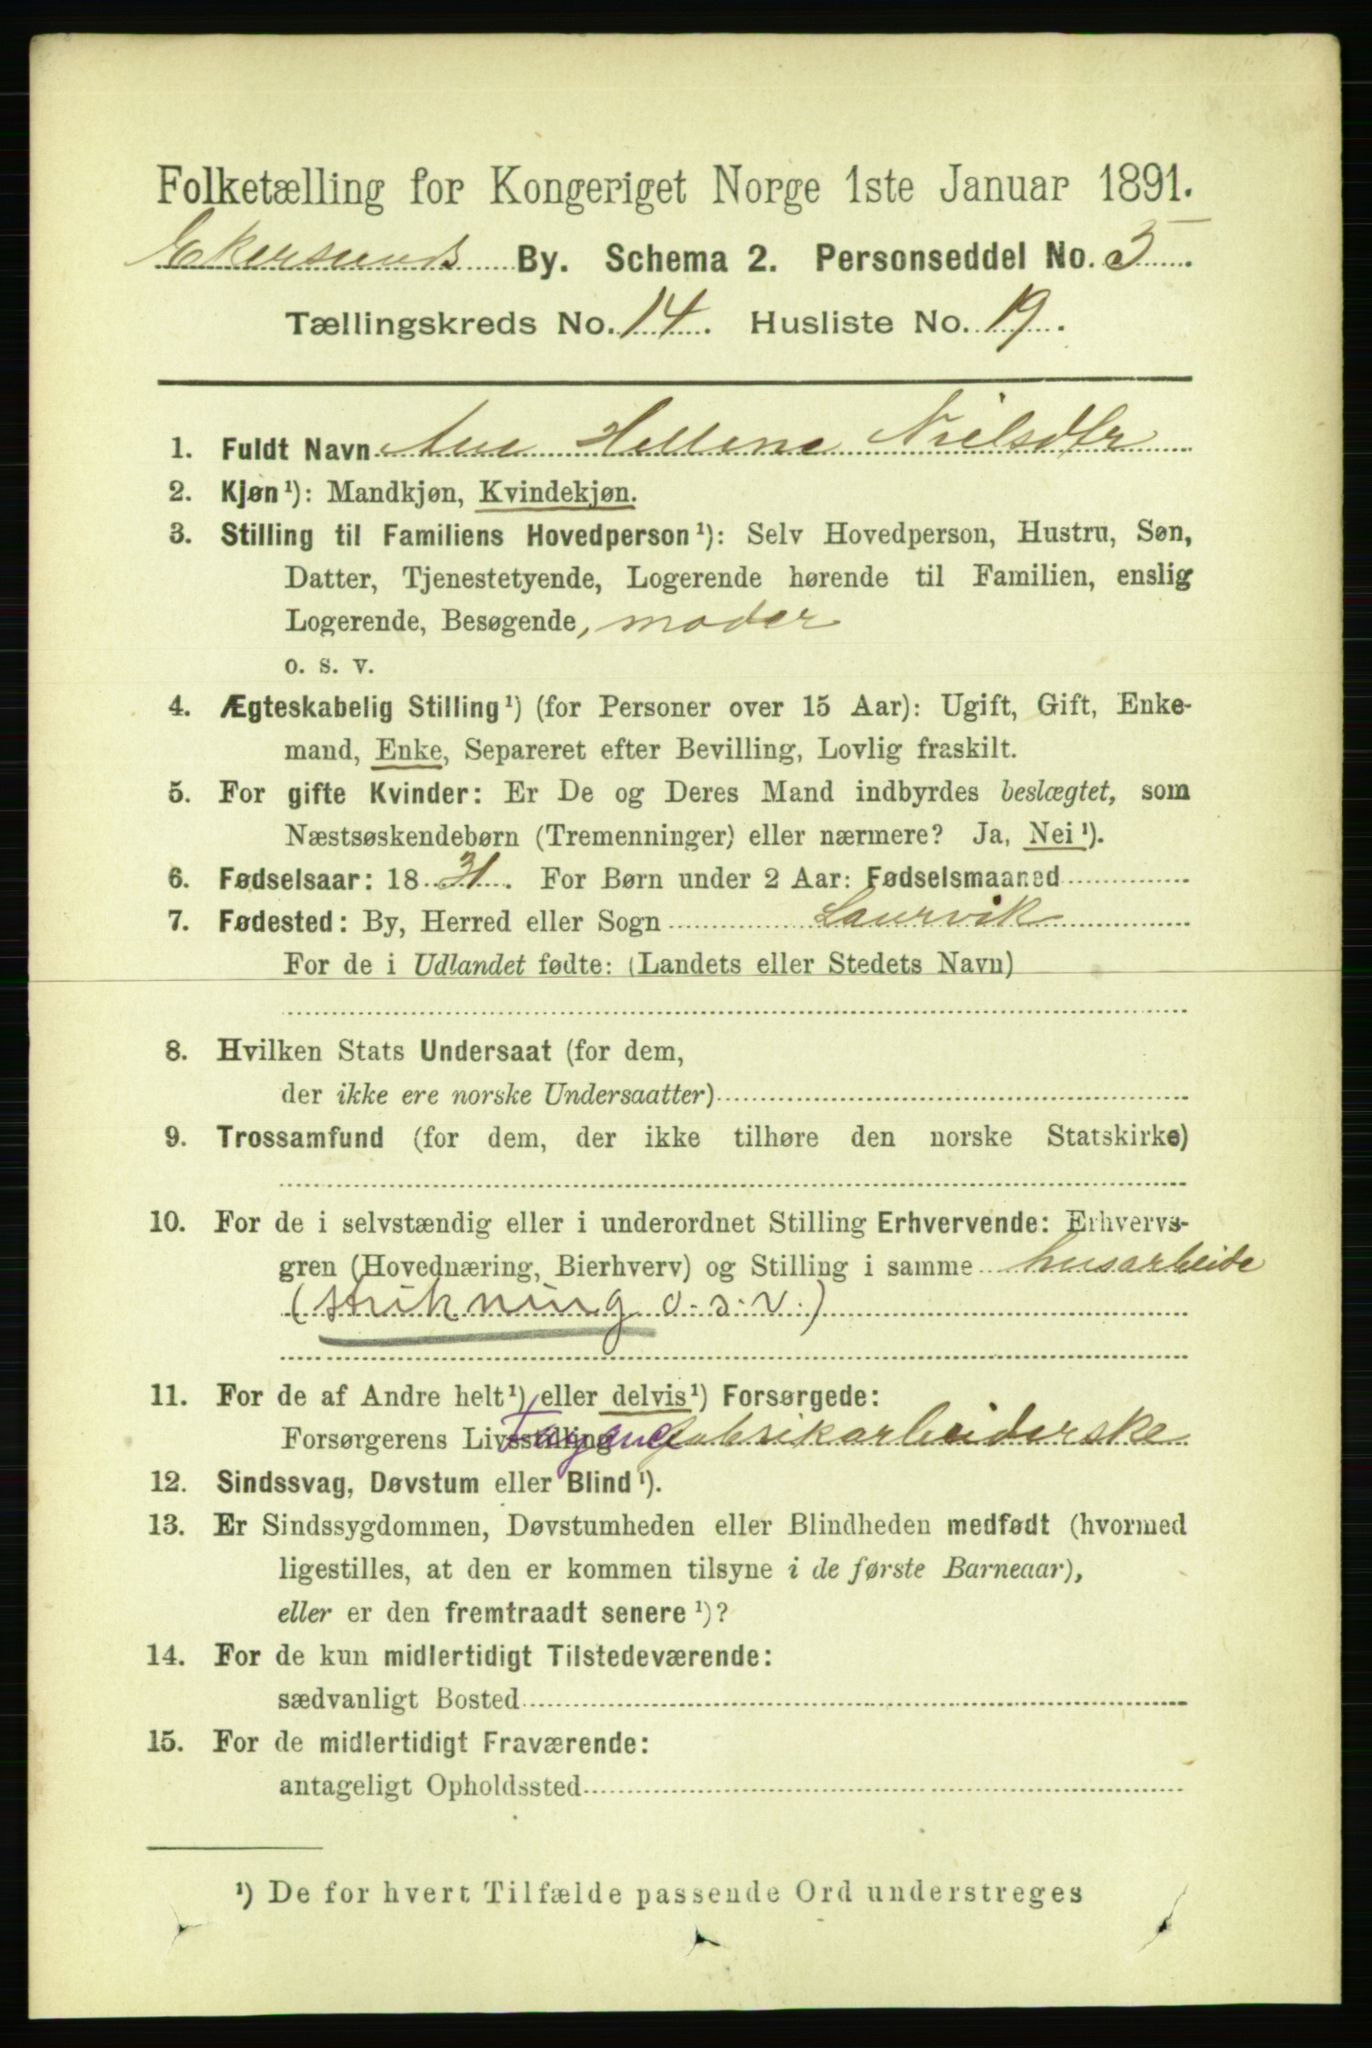 Folketælling for Kongeriget Norge 1ste Januar 1891.
Ekersunds By. Schema 2. Personseddel No. 5.
Tællingskreds No. 14. Husliste No. 19.
1. Fuldt Navn Ane Hellene Nielsdtr
2. Kjøn¹): Mandkjøn, Kvindekjøn.
3. Stilling til Familiens Hovedperson¹): Selv Hovedperson, Hustru, Søn,
Datter, Tjenestetyende, Logerende hørende til Familien, enslig
Logerende, Besøgende, moder
o. s. v.
4. Ægteskabelig Stilling¹) (for Personer over 15 Aar): Ugift, Gift, Enke-
mand, Enke, Separeret efter Bevilling, Lovlig fraskilt.
5. For gifte Kvinder: Er De og Deres Mand indbyrdes beslægtet, som
Næstsøskendebørn (Tremenninger) eller nærmere? Ja, Nei¹).
6. Fødselsaar: 1831. For Børn under 2 Aar: Fødselsmaaned
7. Fødested: By, Herred eller Sogn Laurvik
For de i Udlandet fødte: (Landets eller Stedets Navn)
8. Hvilken Stats Undersaat (for dem,
der ikke ere norske Undersaatter)
9. Trossamfund (for dem, der ikke tilhøre den norske Statskirke)
10. For de i selvstændig eller i underordnet Stilling Erhvervende: Erhvervs-
gren (Hovednæring, Bierhverv) og Stilling i samme husarbeide
(strikning o. s. v.)
11. For de af Andre helt¹) eller delvis¹) Forsørgede:
Forsørgerens Livsstilling Fayancefabrikarbeiderske
12. Sindssvag, Døvstum eller Blind¹).
13. Er Sindssygdommen, Døvstumheden eller Blindheden medfødt (hvormed
ligestilles, at den er kommen tilsyne i de første Barneaar),
eller er den fremtraadt senere¹)?
14. For de kun midlertidigt Tilstedeværende:
sædvanligt Bosted
15. For de midlertidigt Fraværende:
antageligt Opholdssted
¹) De for hvert Tilfælde passende Ord understreges